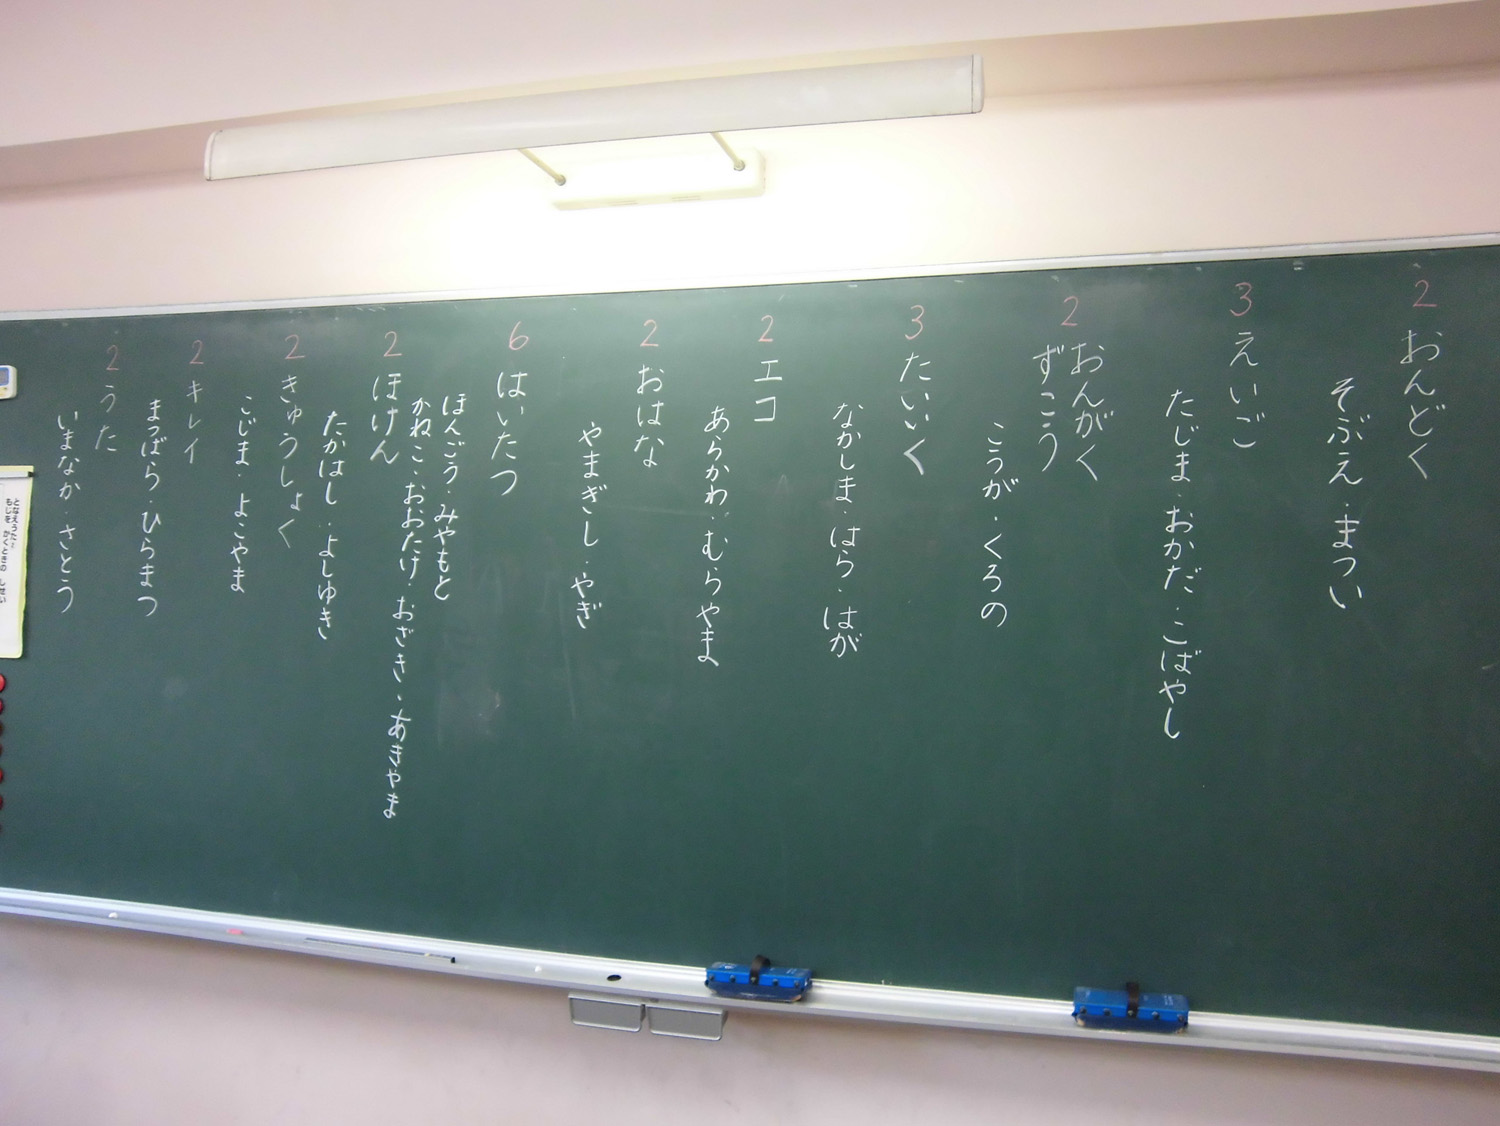 2 おんどく
そぶえ・まつい
3 えいご
たじま・おかだ・こばやし
2 おんがく
ずこう
こうが・くろの
3 たいいく
なかしま・はら・はが
2 エコ
あらかわ・むらやま
2 おはな
やまぎし・やぎ
6 はいたつ
ほんごう・みやもと
かねこ・おおたけ・おざき・あきやま
2 ほけん
たかはし・よしゆき
2 きゅうしょく
こじま・よこやま
2 キレイ
まつばら・ひらまつ
2 うた
いまなか・さとう
となえうた
もじを かくときの しせい